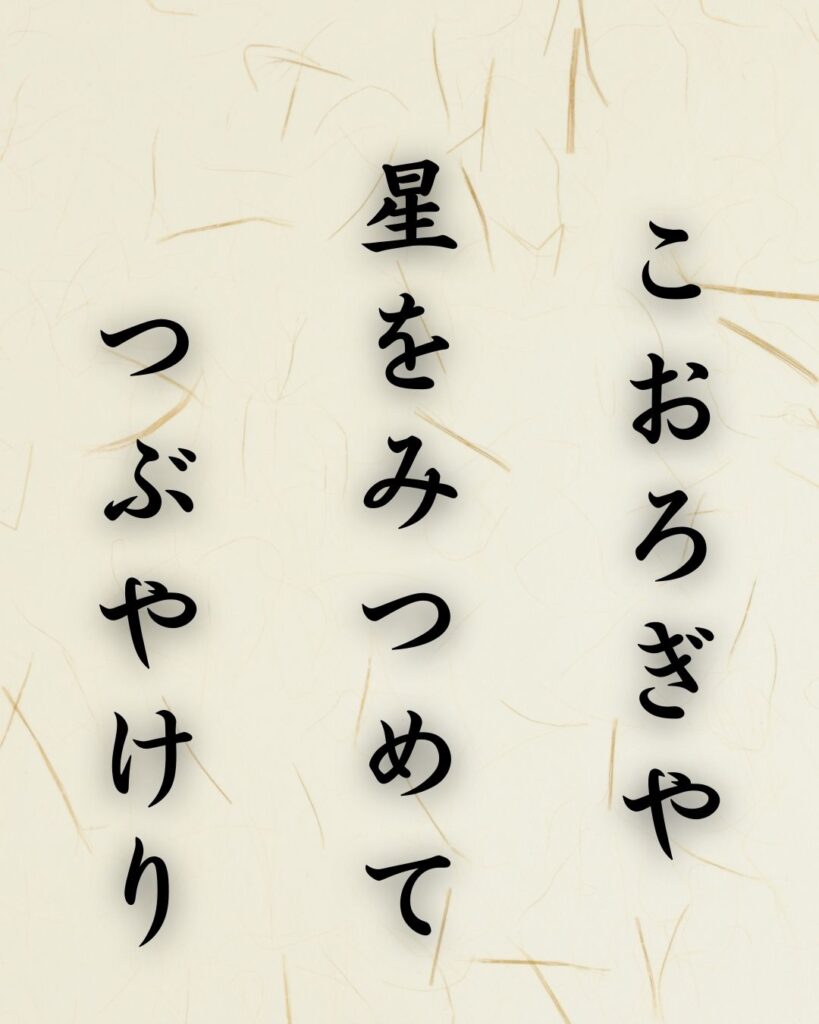 こおろぎや
星をみつめて
つぶやけり